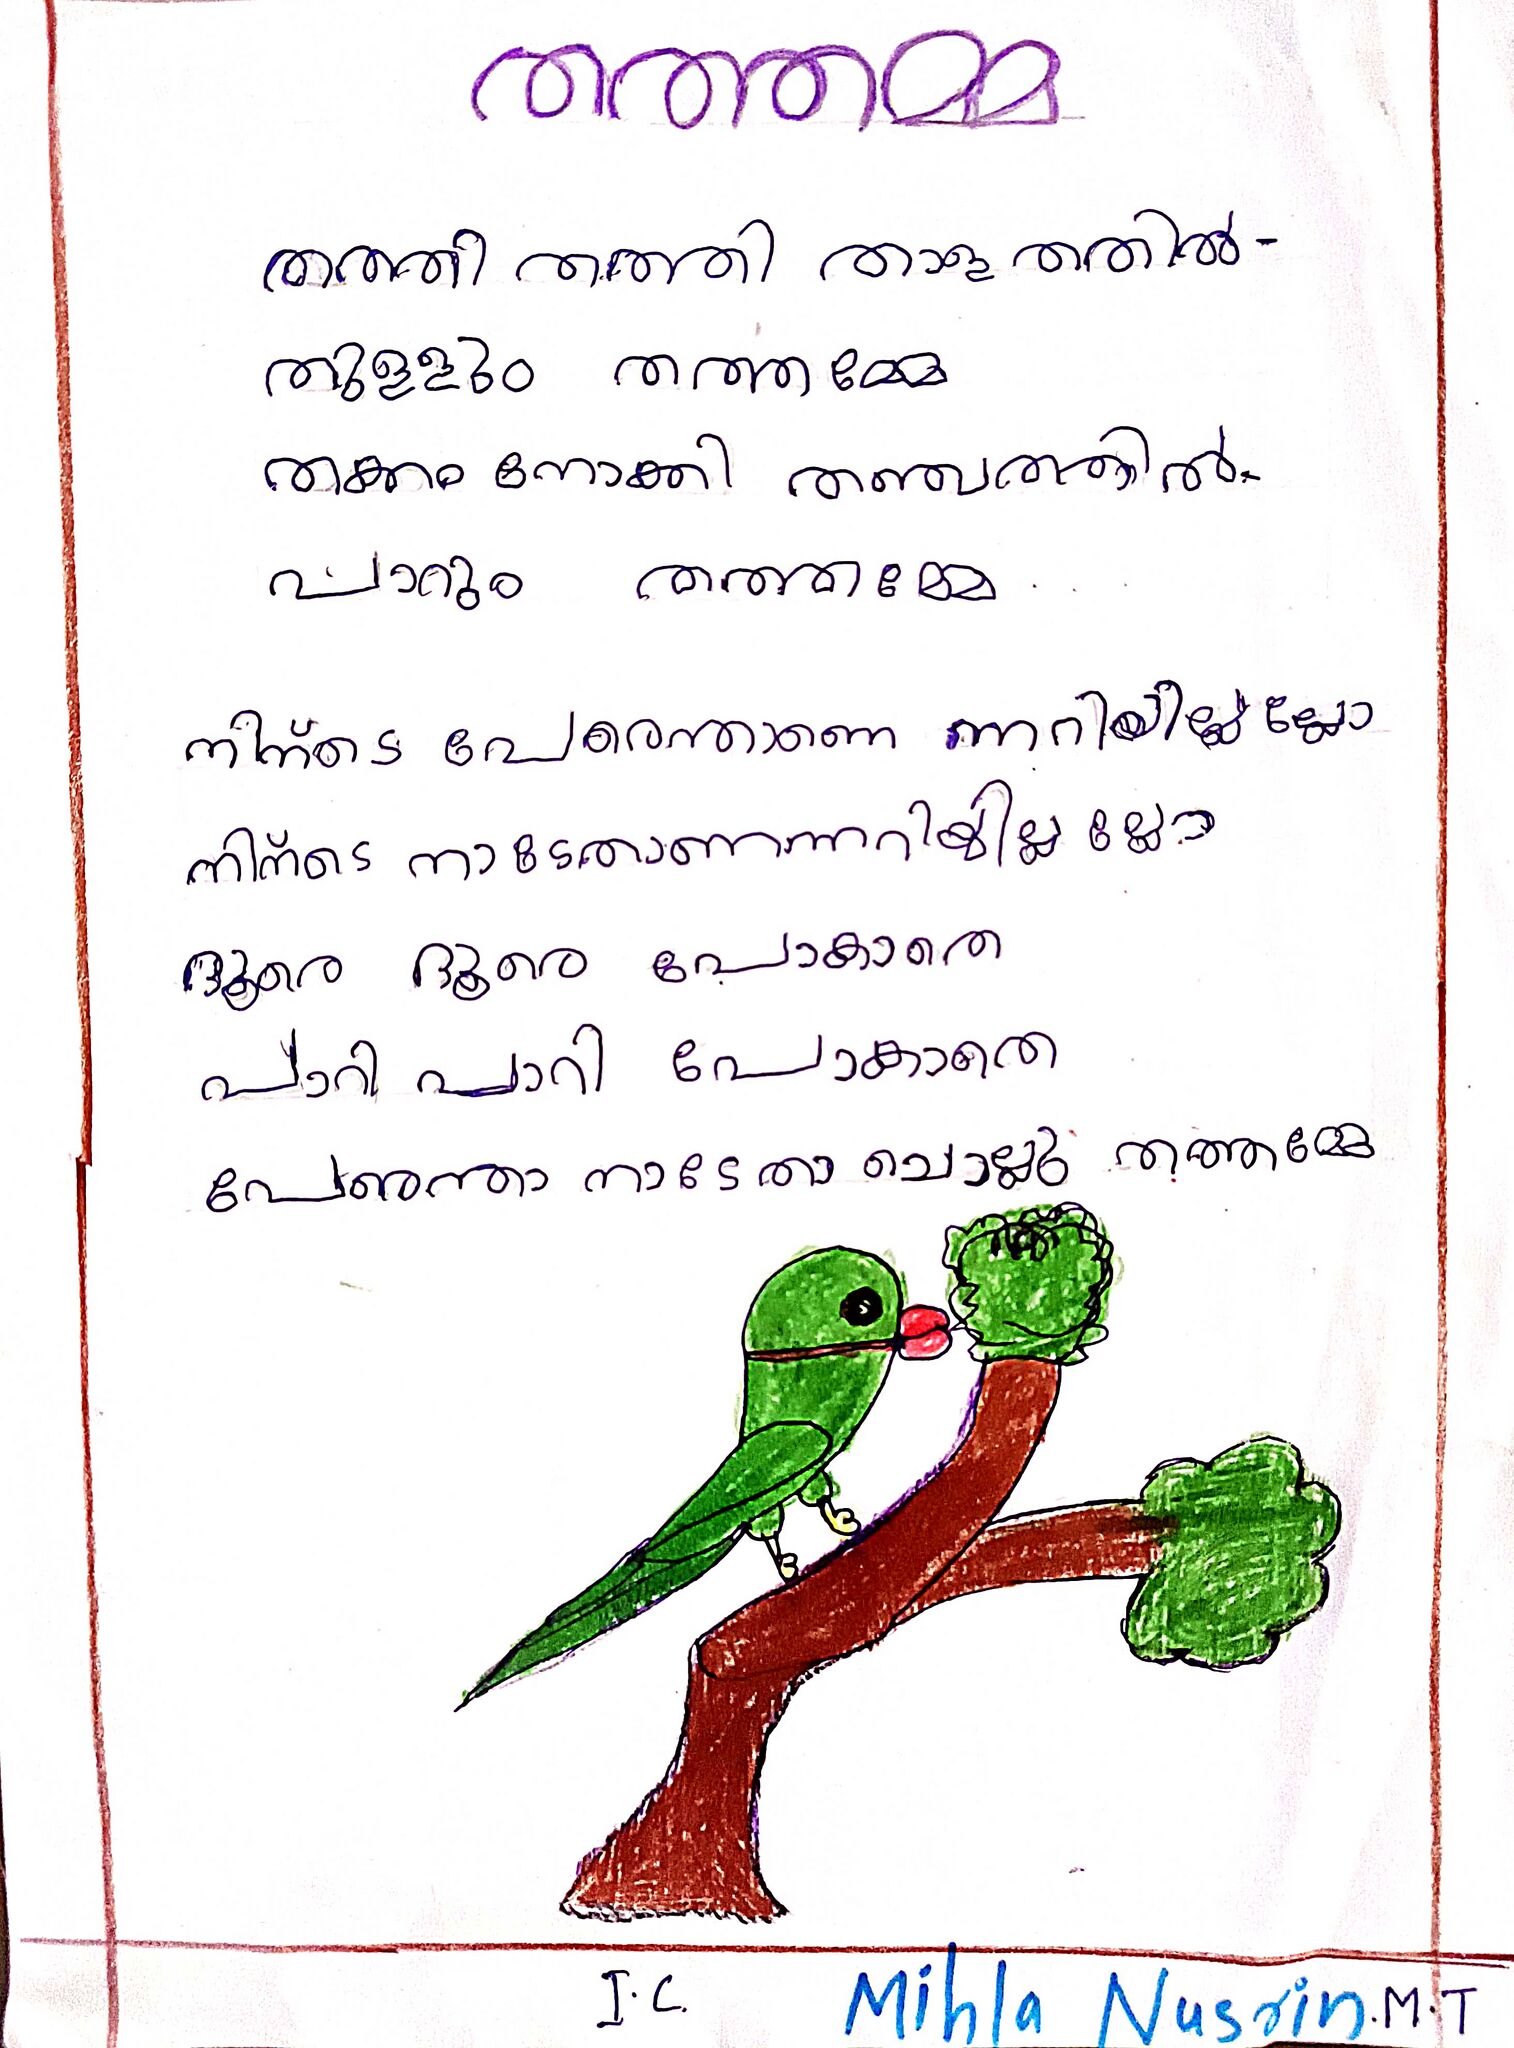 തത്തമ്മ
തത്തി തത്തി താളത്തിൽ-
തുള്ളും തത്തമ്മേ
തക്കം നോക്കി തഞ്ചത്തിൽ-
പാറും തത്തമ്മേ
നിന്ടെ പേരെന്താണെ ന്നറിയില്ല ല്ലോ
നിന്ടെ നാടേതാണന്നറിയില്ല ല്ലോ
ദൂരെ ദൂരെ പോകാതെ
പാറി പാറി പോകാതെ
പേരെന്താ നാടേതാ ചൊല്ലു തത്തമ്മേ
I.C. Mihla Nusrin.M.T